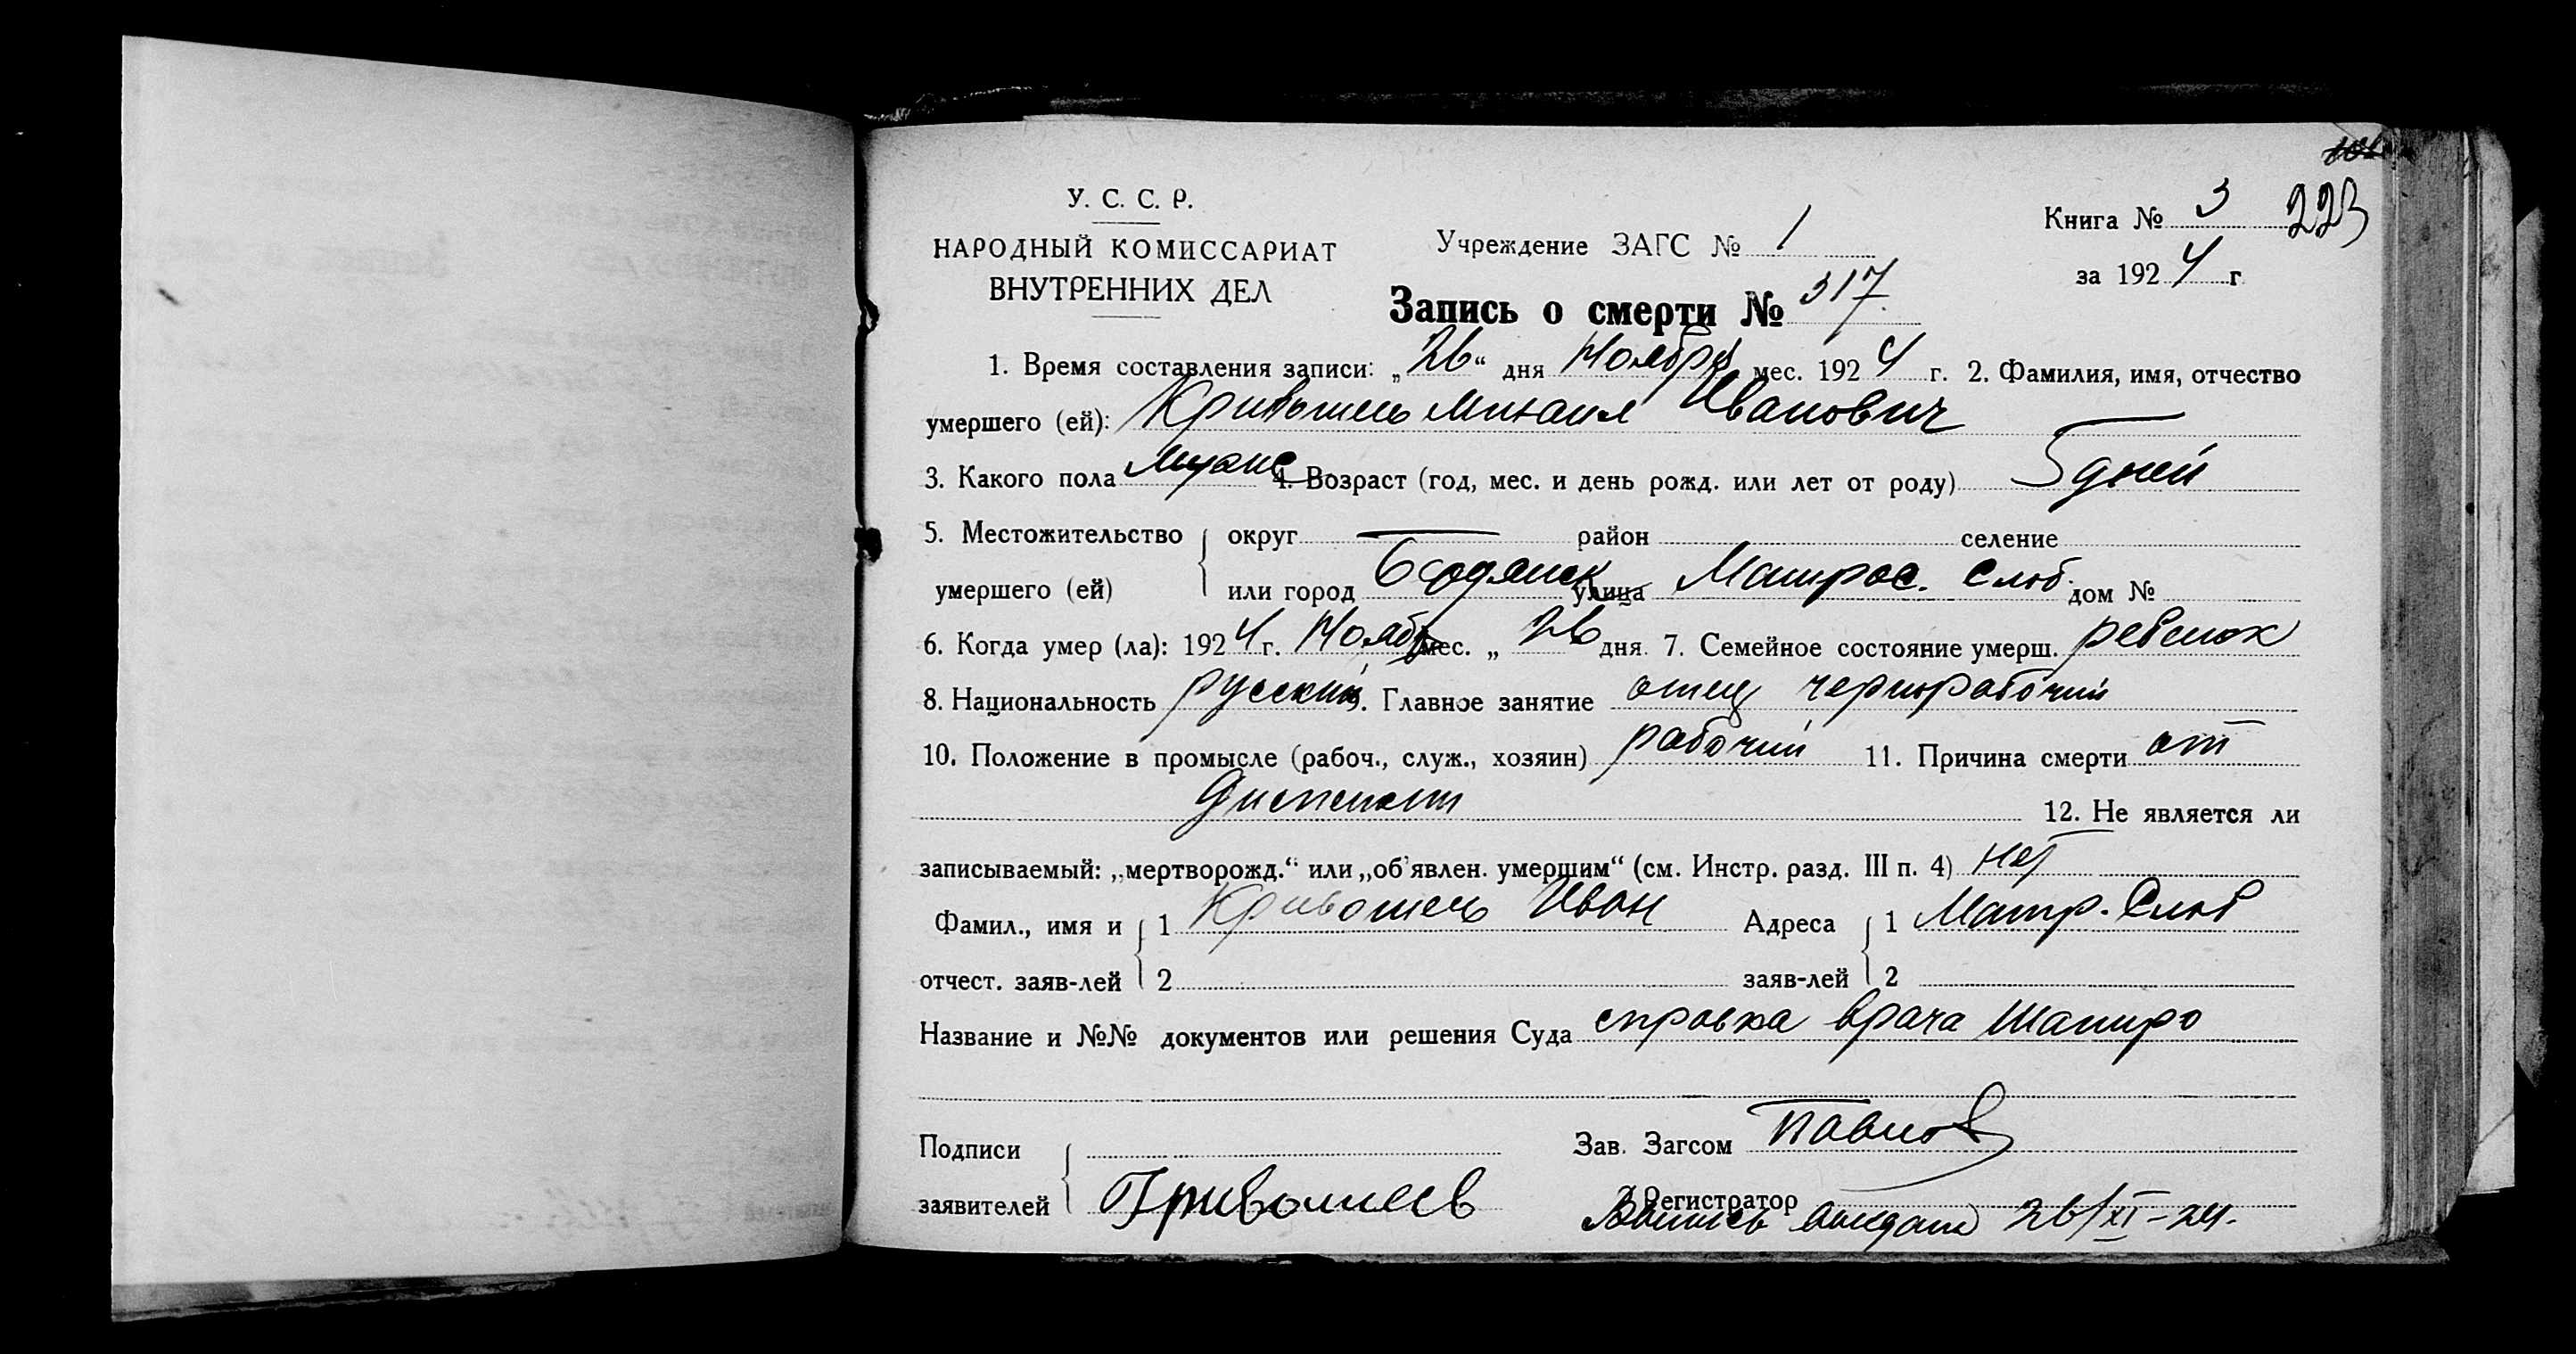 У. С. С. Р.
НАРОДНЫЙ КОМИССАРИАТ
ВНУТРЕННИХ ДЕЛ
Учреждение ЗАГС № 1
Книга № 3 223
за 1924 г.
Запись о смерти № 317
1. Время составления записи: „26“ дня Ноября мес. 1924 г. 2. Фамилия, имя, отчество
умершего (ей): Михаил Иванович
3. Какого пола мужс 4. Возраст (год, мес. и день рожд. или лет от роду) 5 дней
5. Местожительство округ район селение
умершего (ей) или город улица Матрос. Слоб. дом №
6. Когда умер (ла): 1924 г. Ноябр мес. „ 26 дня. 7. Семейное состояние умерш. ребенок
8. Национальность русский 9. Главное занятие отец чернорабочий
10. Положение в промысле (рабоч., служ., хозяин) рабочий 11. Причина смерти от
12. Не является ли
записываемый: „мертворожд.“ или „об'явлен. умершим“ (см. Инстр. разд. III п. 4) нет
Фамил., имя и 1 Иван Адреса 1 Матр. Слоб
отчест. заяв-лей 2 заяв-лей 2
Название и №№ документов или решения Суда справка врача Шапиро
Подписи Зав. Загсом Павлов
заявителей Регистратор
26/XI-24.